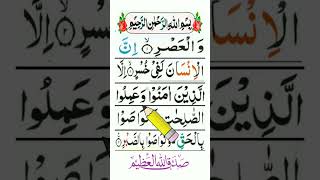 بِسْمِ اللهِ الرَّحْمٰنِ الرَّحِيْمِ
وَالْعَصْرِ ۙ۝۱ اِنَّ
الْاِنْسَانَ لَفِيْ خُسْرٍ ۙ۝۲ اِلَّا
الَّذِيْنَ اٰمَنُوْا وَعَمِلُوا
الصّٰلِحٰتِ وَتَوَاصَوْا
بِالْحَقِّ ۙ وَتَوَاصَوْا بِالصَّبْرِ ۝۳
صَدَقَ اللهُ الْعَظِيْم